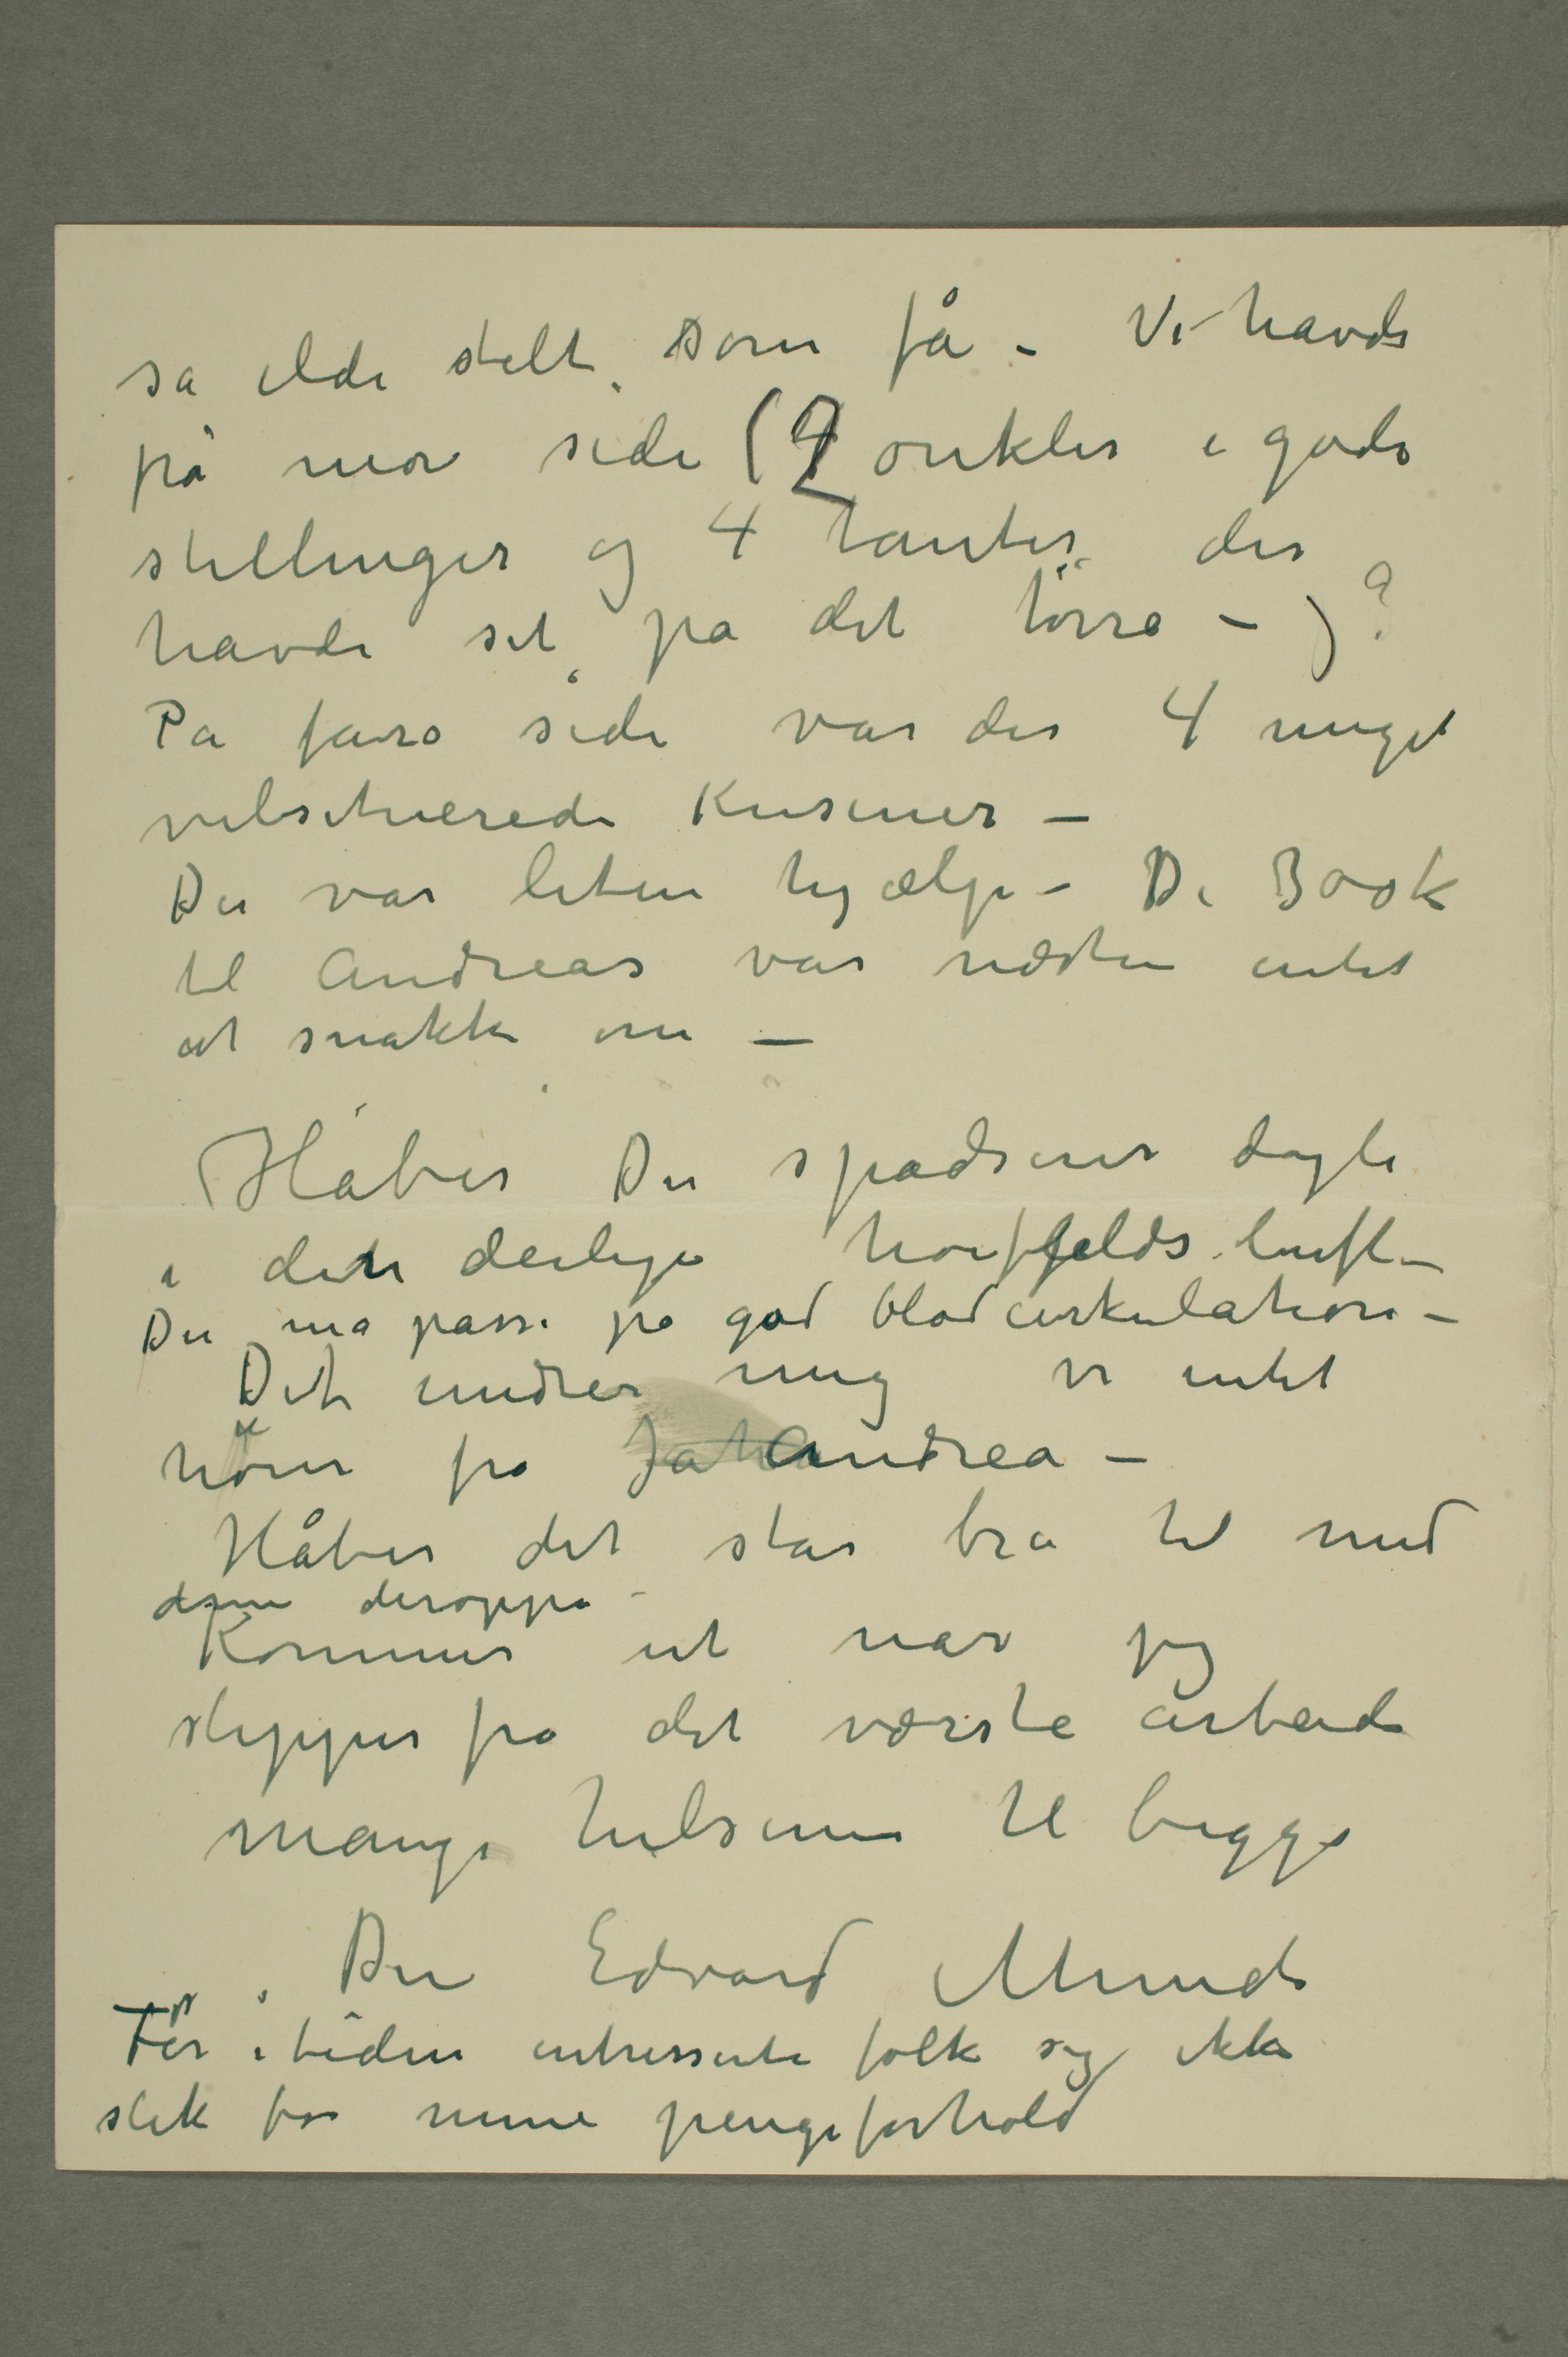 så ilde stelt som få – Vi havde
på mor side (2 onkler i gode
stillinger og 4 tanter der
havde sit på det tørre – )?
På fars side var der 4 meget
velsituerede Kusiner –
Der var liten hjælp – De 300k
til Andreas var næsten intet
at snakke om –
Håber Du spadserer dagli
i den deilige høifjelds luft –
Du må passe på god blodcirkulation –
Det undrer mig vi intet
hører fra Andrea –
Håber det står bra til med
dem deroppe –
Kommer ut når jeg
slipper fra det værste arbeide
Mange hilsener til begge
Din Edvard Munch
Før i tiden intresserte folk sig ikke
slik for mine pengeforhold